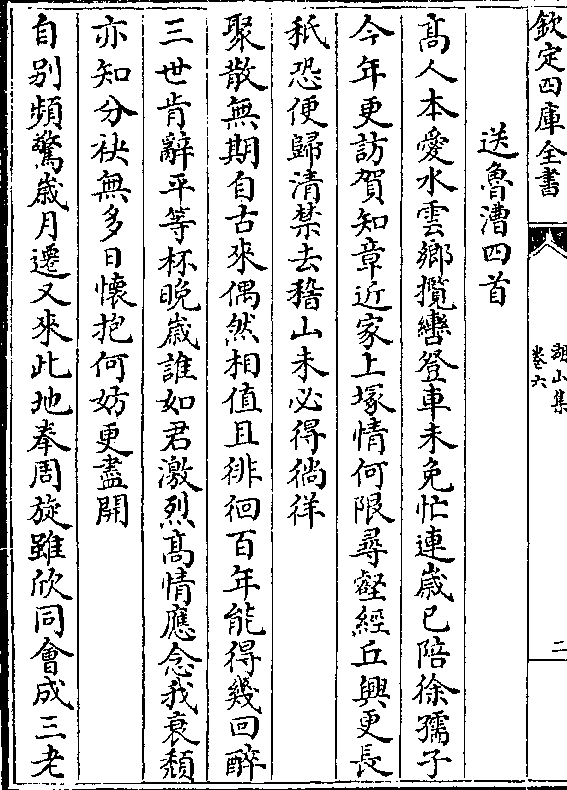 欽定四庫全書
湖山集
卷六
二
送魯漕四首
髙人本愛水雲鄉攬轡登車未免忙連歲已陪徐孺子
今年更訪賀知章近家上塚情何限尋壑經丘興更長
秪恐便歸清禁去稽山未必得徜徉
聚散無期自古來偶然相值且徘徊百年能得幾回醉
三世肯辭平等杯晚歲誰如君激烈髙情應念我衰頹
亦知分袂無多日懐抱何妨更盡開
自别頻驚歲月遷又來此地奉周旋雖欣同會成三老